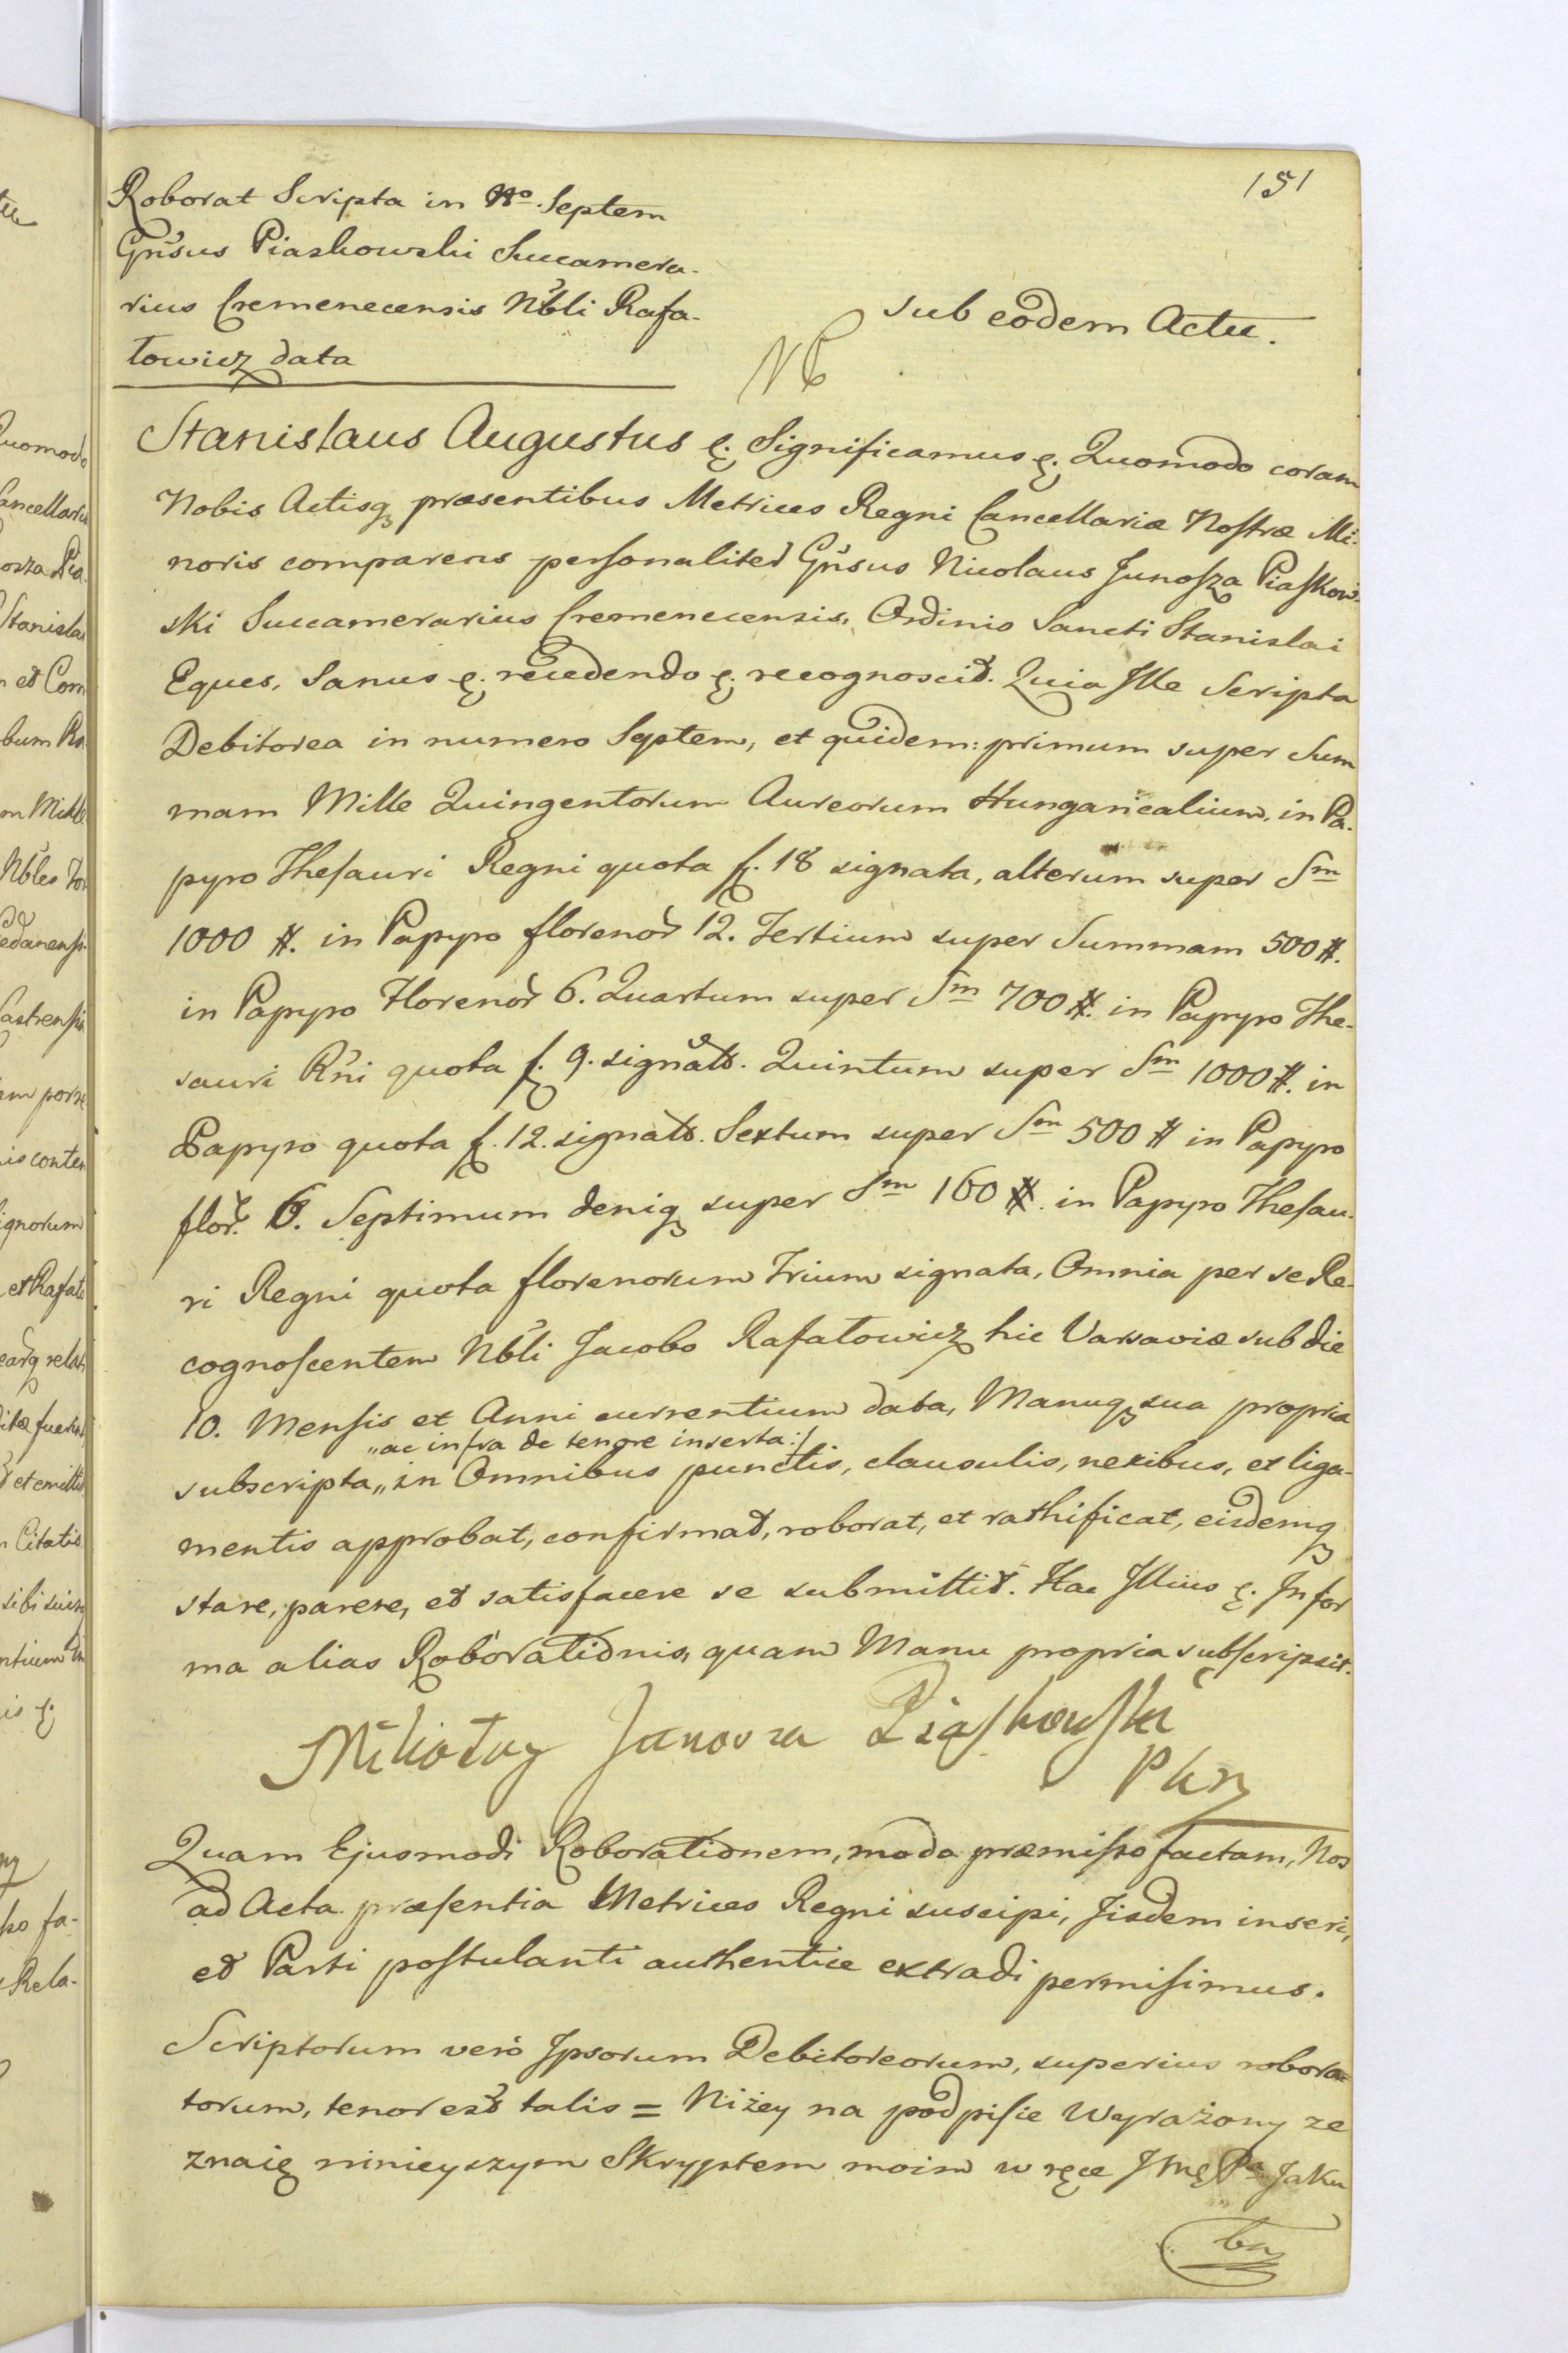 151
Roborat Scripta in Nº Septem
Gnsus Piaskowski Succamera-
rius Cremenecensis Nbli Rafa-
łowicz data
sub eodem Actu.
Stanislaus Augustus &. Significamus &. Quomodo coram
Nobis Actisq præsentibus Metrices Regni Cancellariæ Nostræ Mi-
noris comparens personaliter Gnsus Nicolaus Junosza Piaskow-
ski Succamerarius Cremenecensis, Ordinis Sancti Stanislai
Eques, Sanus &. recedendo &. recognoscit. Quia Ille Scripta
Debitorea in numero Septem, et quidem: primum super Sum
mam Mille Quingentorum Aureorum Hungaricalium, in Pa-
pyro Thesauri Regni quota f. 18 signata, alterum super Sm
1000 #. in Papyro florenor 12. Tertium super Summam 500 #.
in Papyro Florenor 6. Quartum super Sm 700 #. in Papyro The-
sauri Rni quota f. 9. signats. Quintum super Sm 1000 #. in
Papyro quota f. 12. signats. Sextum super Sm 500 # in Papyro
flor. 6. Septimum deniq super Sm 160 #. in Papyro Thesau-
ri Regni quota florenorum Trium signata, Omnia per se Re-
cognoscentem Nbli Jacobo Rafałowicz hic Varsaviæ sub die
10. Mensis et Anni currentium data, Manuq sua propria
„ac infra de tenore inserta:/
subscripta„ in Omnibus punctis, clausulis, nexibus, et liga-
mentis approbat, confirmat, roborat, et rathificat, eisdemq
stare, parere, et satisfacere se submittit. Hac Illius &. In for
ma alias Roborationis, quam Manu propria subscripsit.
Mikołay Junosza Piaskowski
PKrz
Quam Ejusmodi Roborationem, modo præmisso factam, Nos
ad Acta præsentia Metrices Regni suscipi, Iisdem inseri,
et Parti postulanti authentice extradi permisimus.
Scriptorum verò Ipsorum Debitoreorum, superius robora=
torum, tenor est talis = Niżey na podpisie Wyrażony ze
znaię ninieyszym Skryptem moim w ręce Jmę Pa Jaku
ba